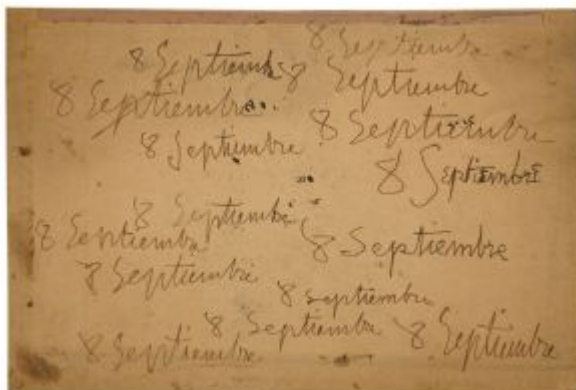 8 Septiembre
8 Septiembre
8 Septiembre
8 Septiembre
8 Septiembre
8 Septiembre
8 Septiembre
8 Septiembre
8 Septiembre
8 Septiembre
8 Septiembre
8 septiembre
8 Septiembre
8 Septiembre
8 Septiembre